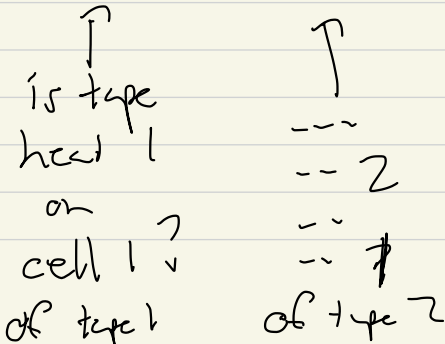 is tape
head 1
on
cell 1 ?
of tape 1
---
-- 2
--
-- 1
of tape 2